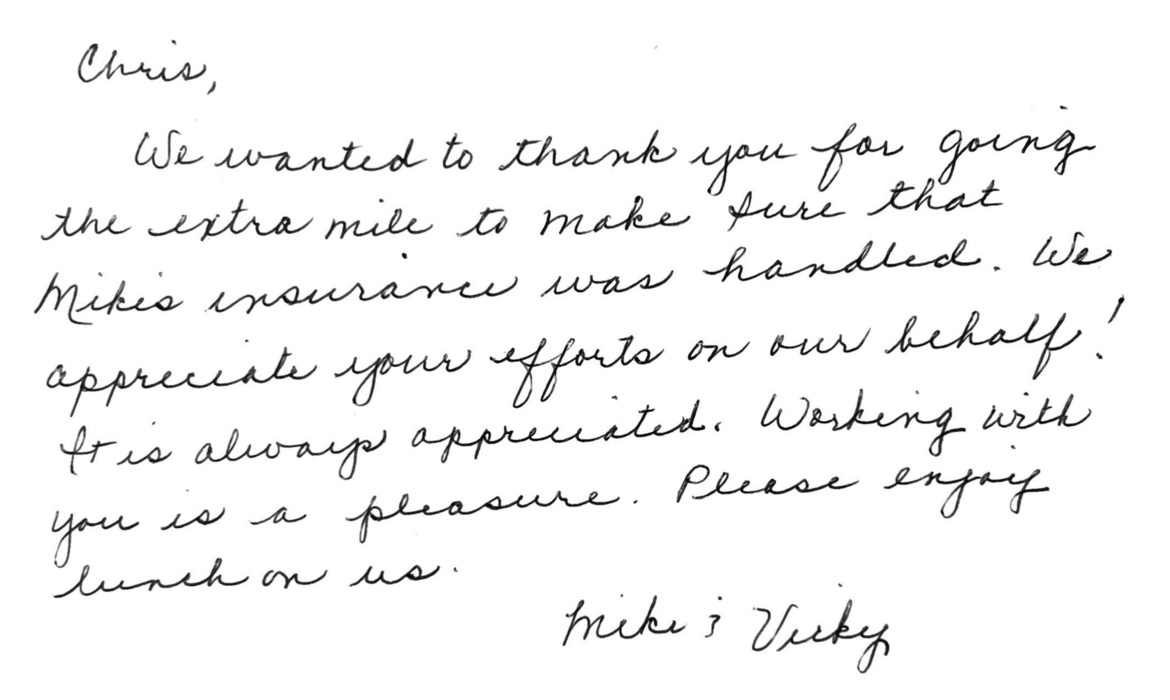 Chris,
We wanted to thank you for going
the extra mile to make sure that
Mikes insurance was handled. We
appreciate your efforts on our behalf!
It is always appreciated. Working with
you is a pleasure. Please enjoy
lunch on us.
Mike & Vicky